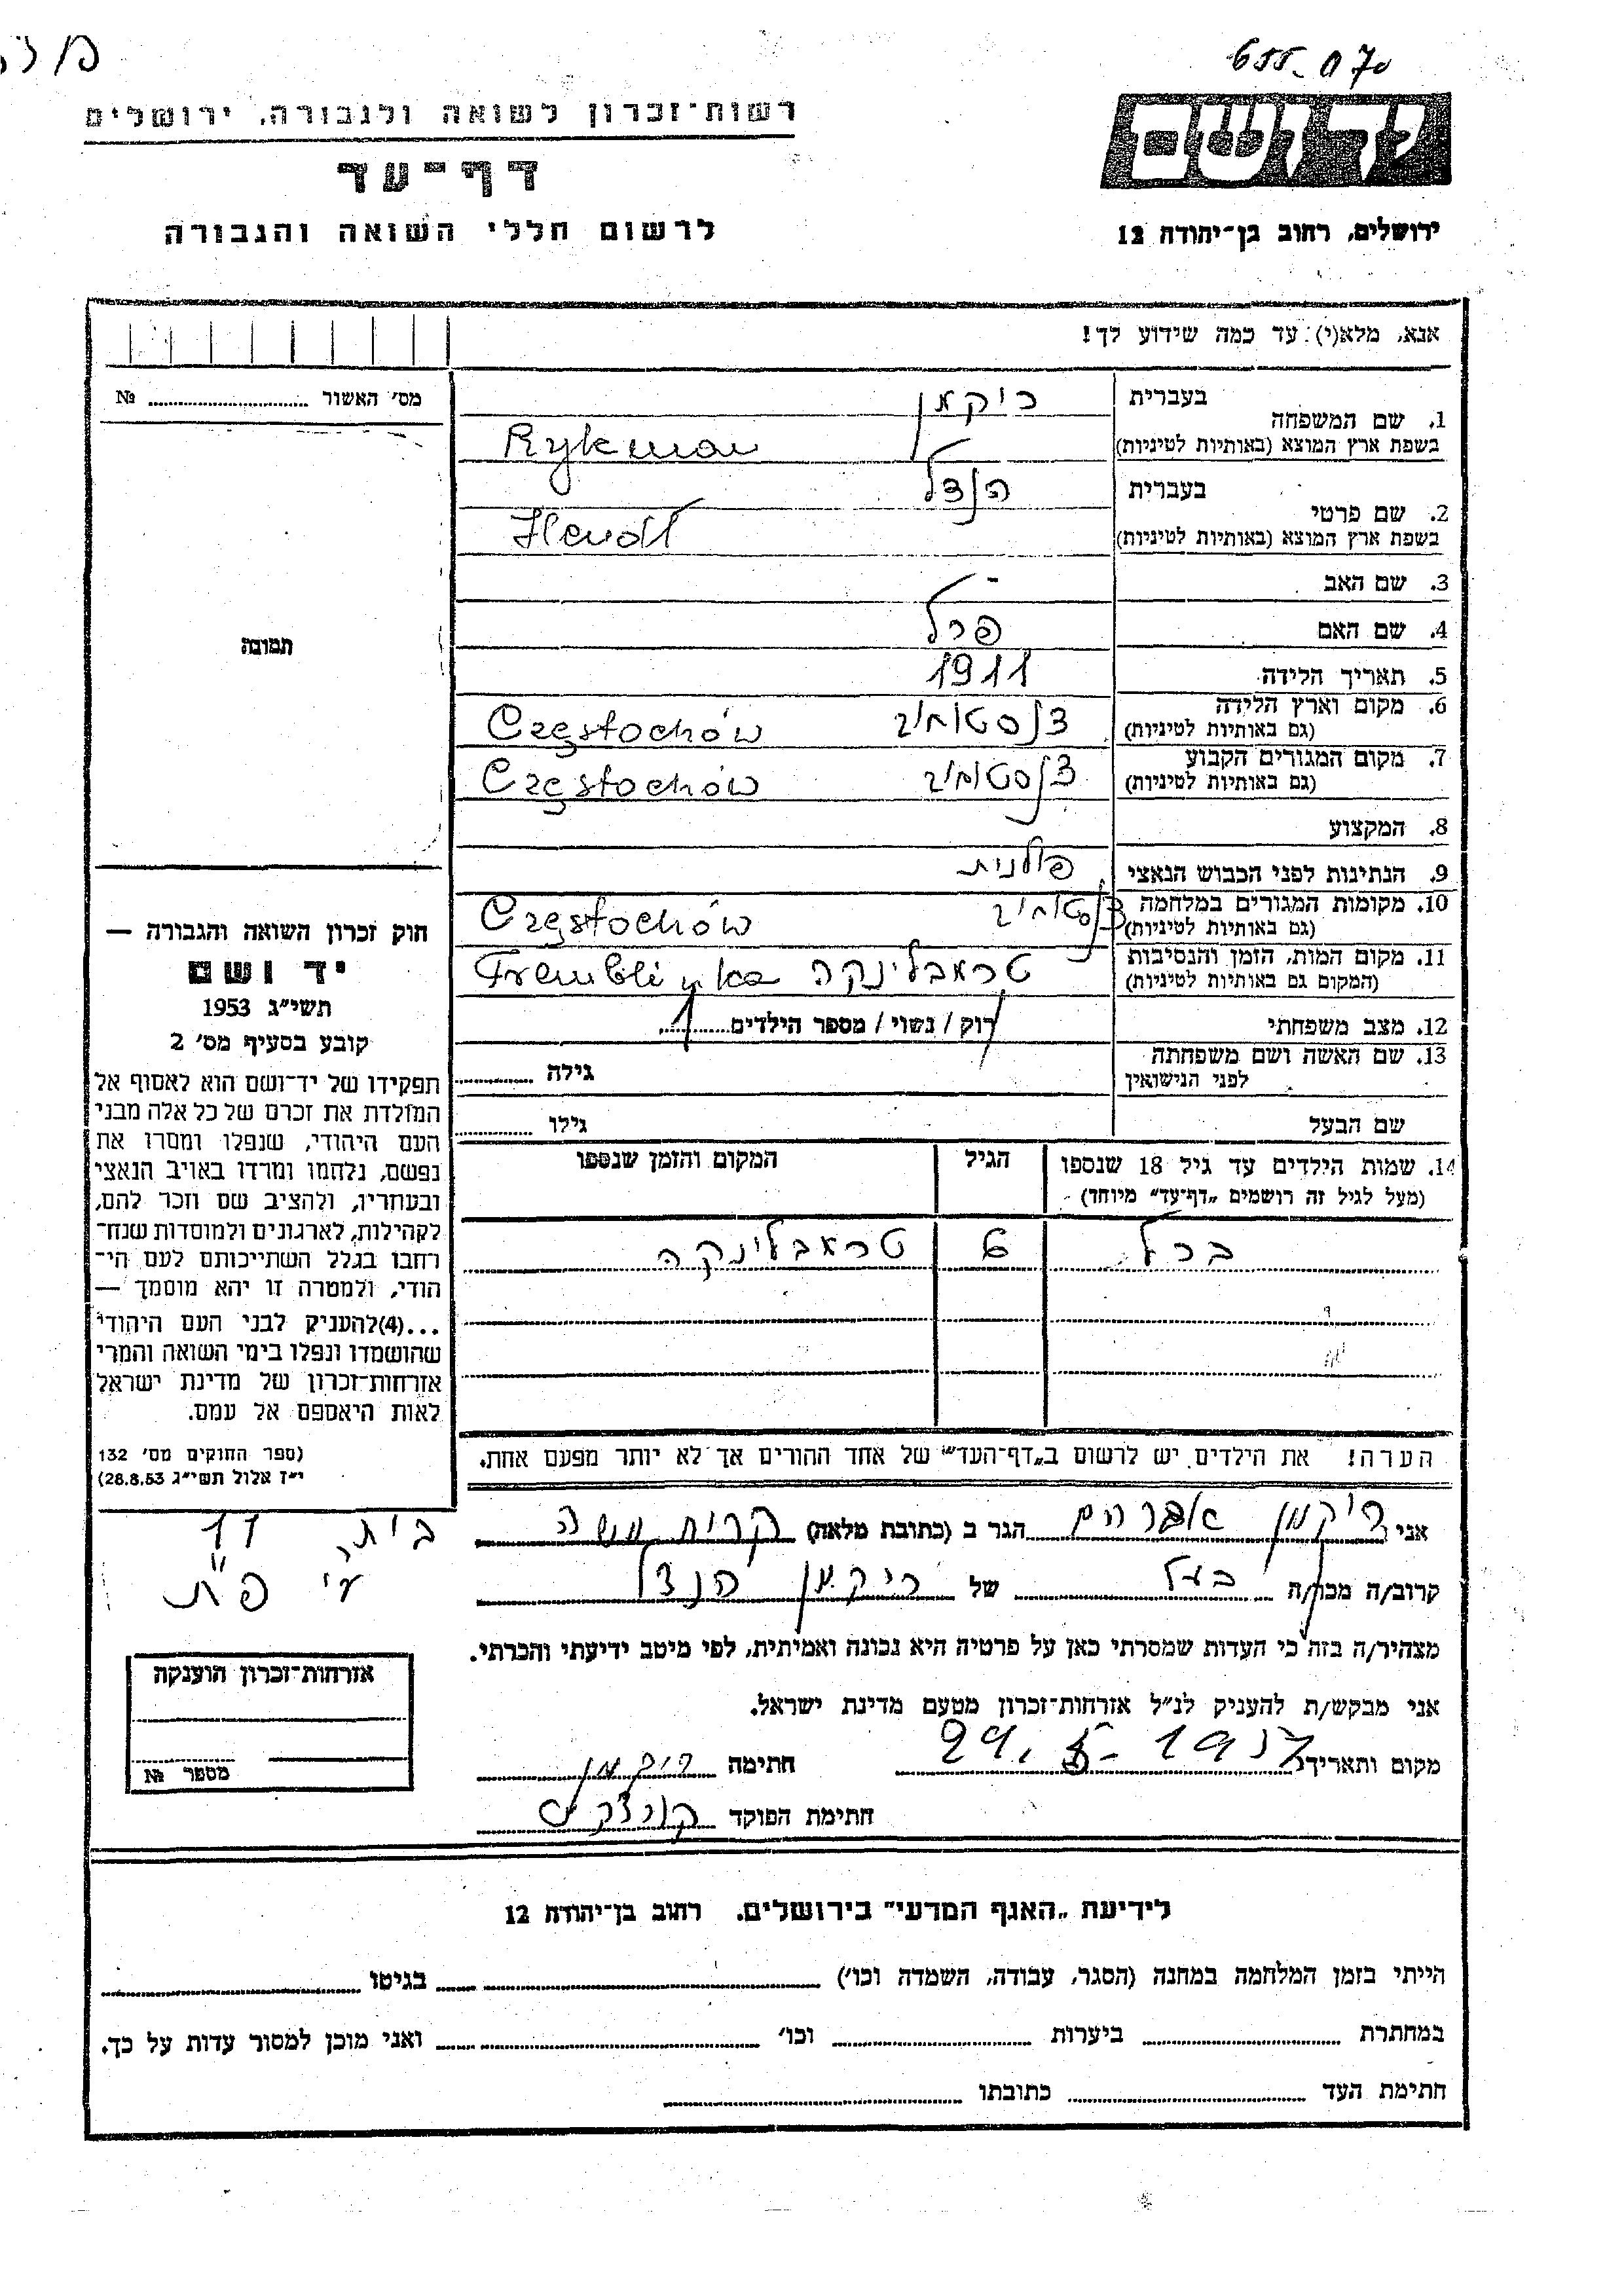 655-070
רשות-זכרון לשואה ולגבורה, ירושלים
יד ושם
דף-עד
לרשום חללי השואה והגבורה
ירושלים, רחוב בן-יהודה 12
אנא, מלא(י) עד כמה שידוע לך!
מס' האשור № 
1. שם המשפחה בעברית ריקמן
בשפת ארץ המוצא (באותיות לטיניות) Rykman
2. שם פרטי בעברית הנדל
בשפת ארץ המוצא (באותיות לטיניות) Hendl
3. שם האב -
4. שם האם פרל
5. תאריך הלידה 1911
6. מקום וארץ הלידה צ'נסטוחוב Częstochów
(גם באותיות לטיניות)
7. מקום המגורים הקבוע צ'נסטוחוב Częstochów
(גם באותיות לטיניות)
8. המקצוע
9. הנתינות לפני הכבוש הנאצי פולנית
10. מקומות המגורים במלחמה צ'נסטוחוב Częstochów
(גם באותיות לטיניות)
11. מקום המות, הזמן והנסיבות טרמבלינקה Tremblinka
(המקום גם באותיות לטיניות)
12. מצב משפחתי רוק / נשוי / מספר הילדים 1
13. שם האשה ושם משפחתה
לפני הנישואין גילה
שם הבעל גילו
14. שמות הילדים עד גיל 18 שנספו הגיל המקום והזמן שנספו
(מעל לגיל זה רושמים „דף-עד" מיוחד)
6 טרמבלינקה
הערה! את הילדים יש לרשום ב„דף-העד" של אחד ההורים אך לא יותר מפעם אחת.
תמונה
חוק זכרון השואה והגבורה —
יד ושם
תשי"ג 1953
קובע בסעיף מס' 2
תפקידו של יד-ושם הוא לאסוף אל
המולדת את זכרם של כל אלה מבני
העם היהודי, שנפלו ומסרו את
נפשם, נלחמו ומרדו באויב הנאצי
ובעוזריו, ולהציב שם וזכר להם,
לקהילות, לארגונים ולמוסדות שנח-
רבו בגלל השתייכותם לעם הי-
הודי, ולמטרה זו יהא מוסמך —
...(4)להעניק לבני העם היהודי
שהושמדו ונפלו בימי השואה והמרי
אזרחות-זכרון של מדינת ישראל
לאות היאספם אל עמם.
(ספר החוקים מס' 132
י"ז אלול תשי"ג 28.8.53)
אני ריקמן אברהם הגר ב (כתובת מלאה) קרית משה
בית 17
ע"י פ"ת
קרוב/ה מכר/ה בעל של ריקמן הנדל
מצהיר/ה בזה כי העדות שמסרתי כאן על פרטיה היא נכונה ואמיתית, לפי מיטב ידיעתי והכרתי.
אני מבקש/ת להעניק לנ"ל אזרחות-זכרון מטעם מדינת ישראל.
מקום ותאריך 1957 חתימה ריקמן
חתימת הפוקד
אזרחות-זכרון הוענקה
מספר №
לידיעת „האגף המדעי" בירושלים, רחוב בן-יהודה 12
הייתי בזמן המלחמה במחנה (הסגר, עבודה, השמדה וכו') בגיטו
במחתרת ביערות וכו' ואני מוכן למסור עדות על כך.
חתימת העד כתובתו